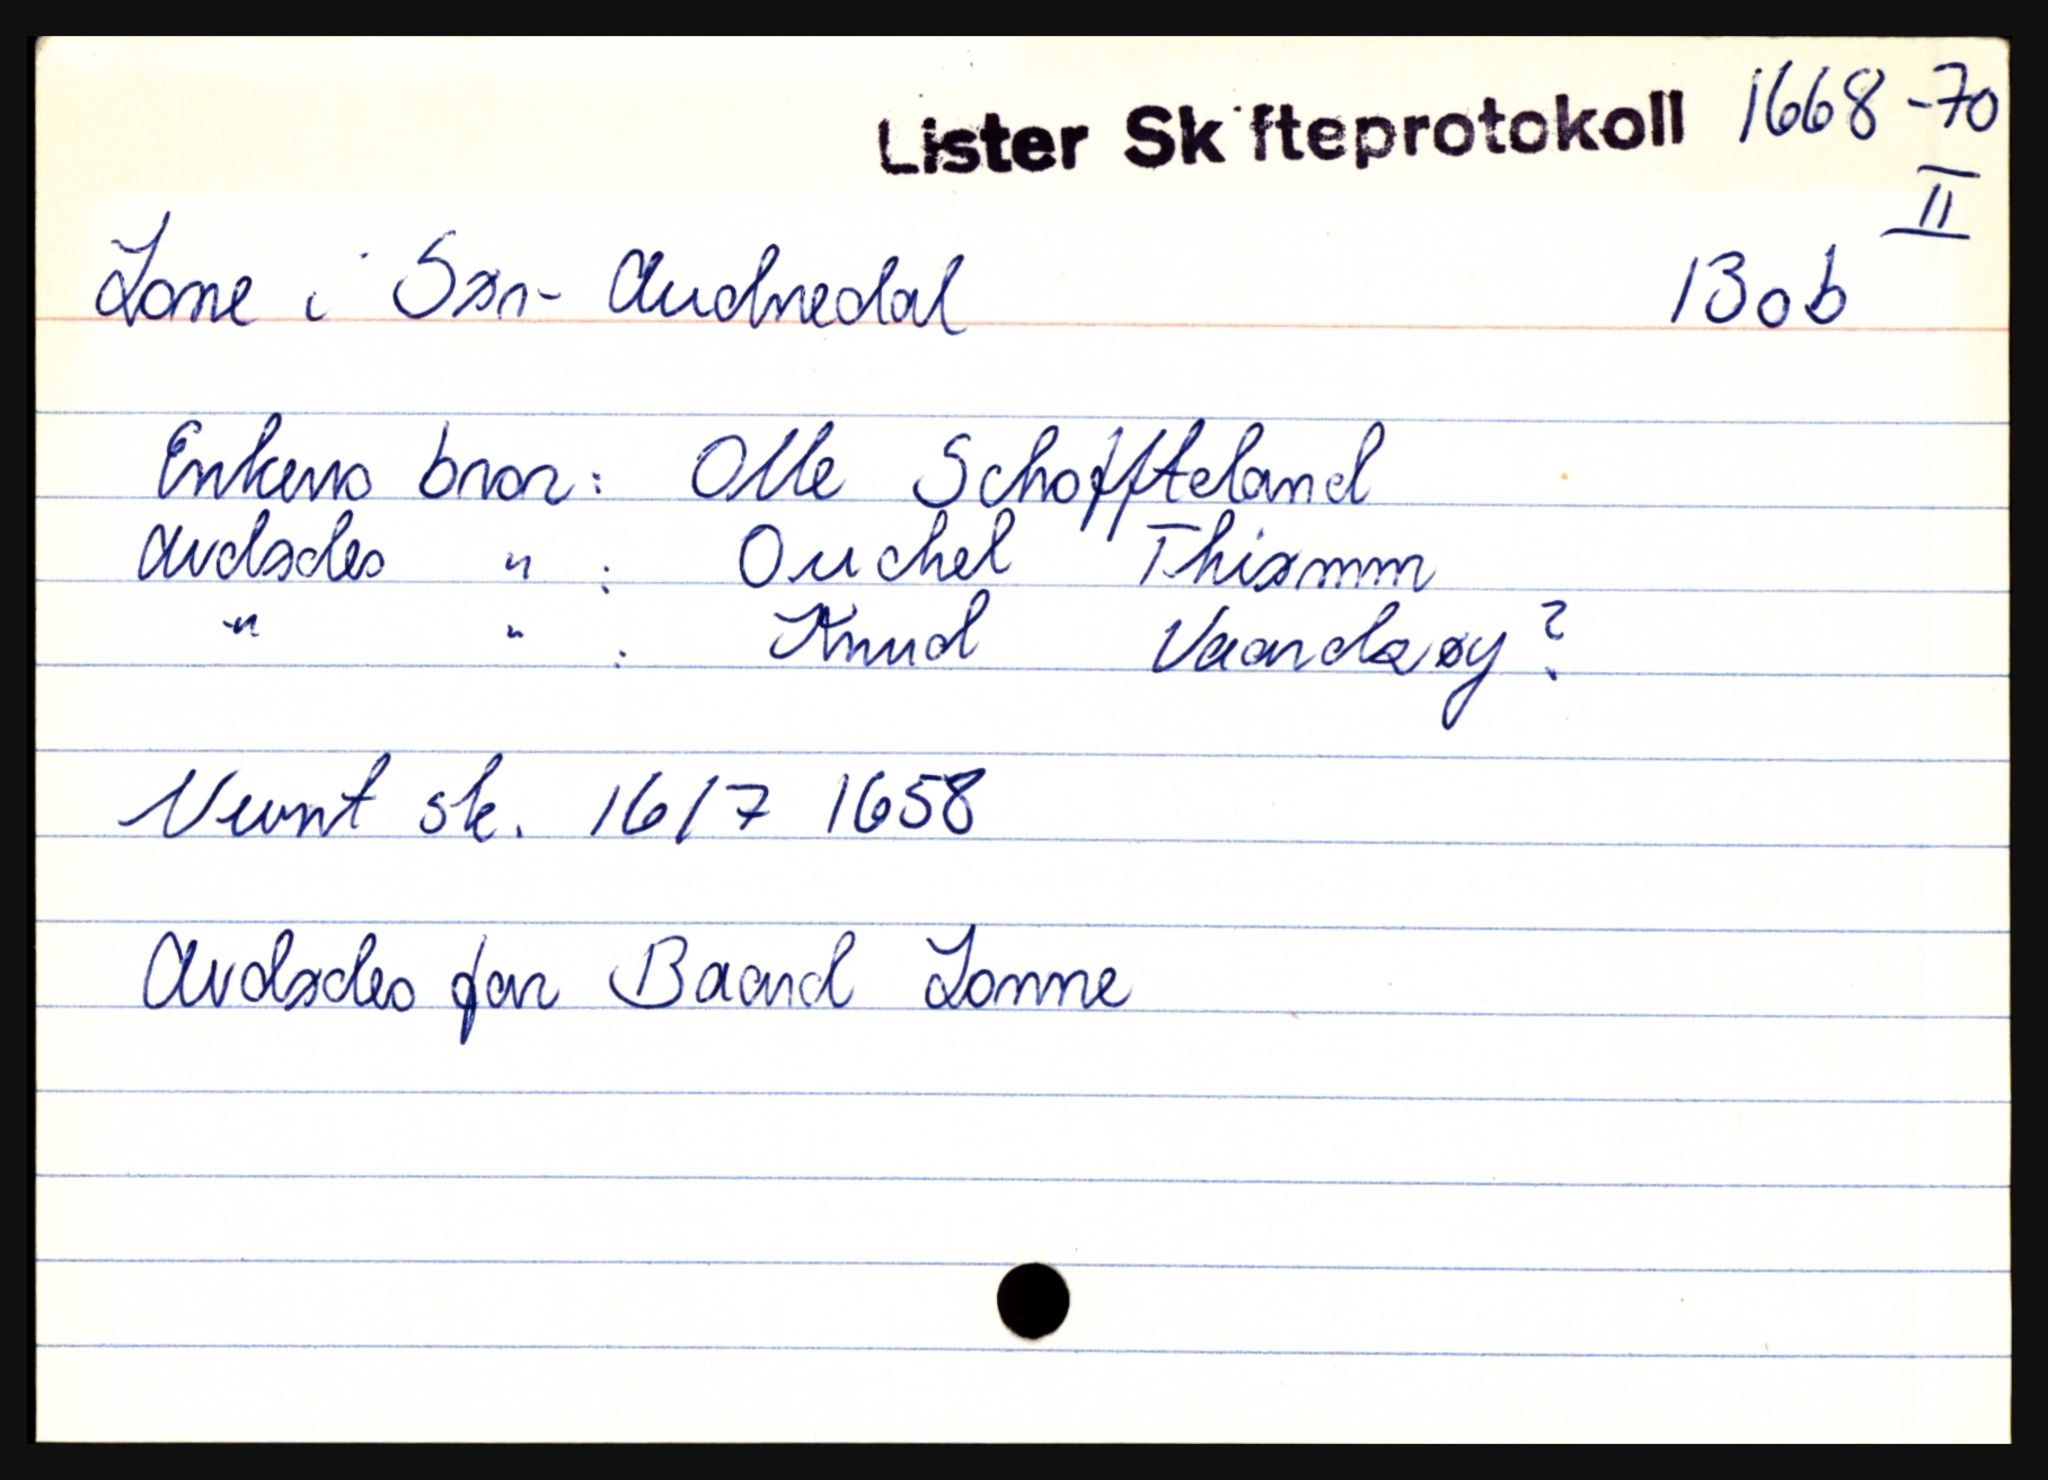 Lister Skifteprotokoll 1668-70
II
Lone i Søn-Audnedal 130b
Enkens bror: Olle Schoffteland
Avdødes " : Ouchel Thiømm
" " : Knud Vaardøy?
Nevnt sk. 16/7 1658
Avdødes far Baard Lonne